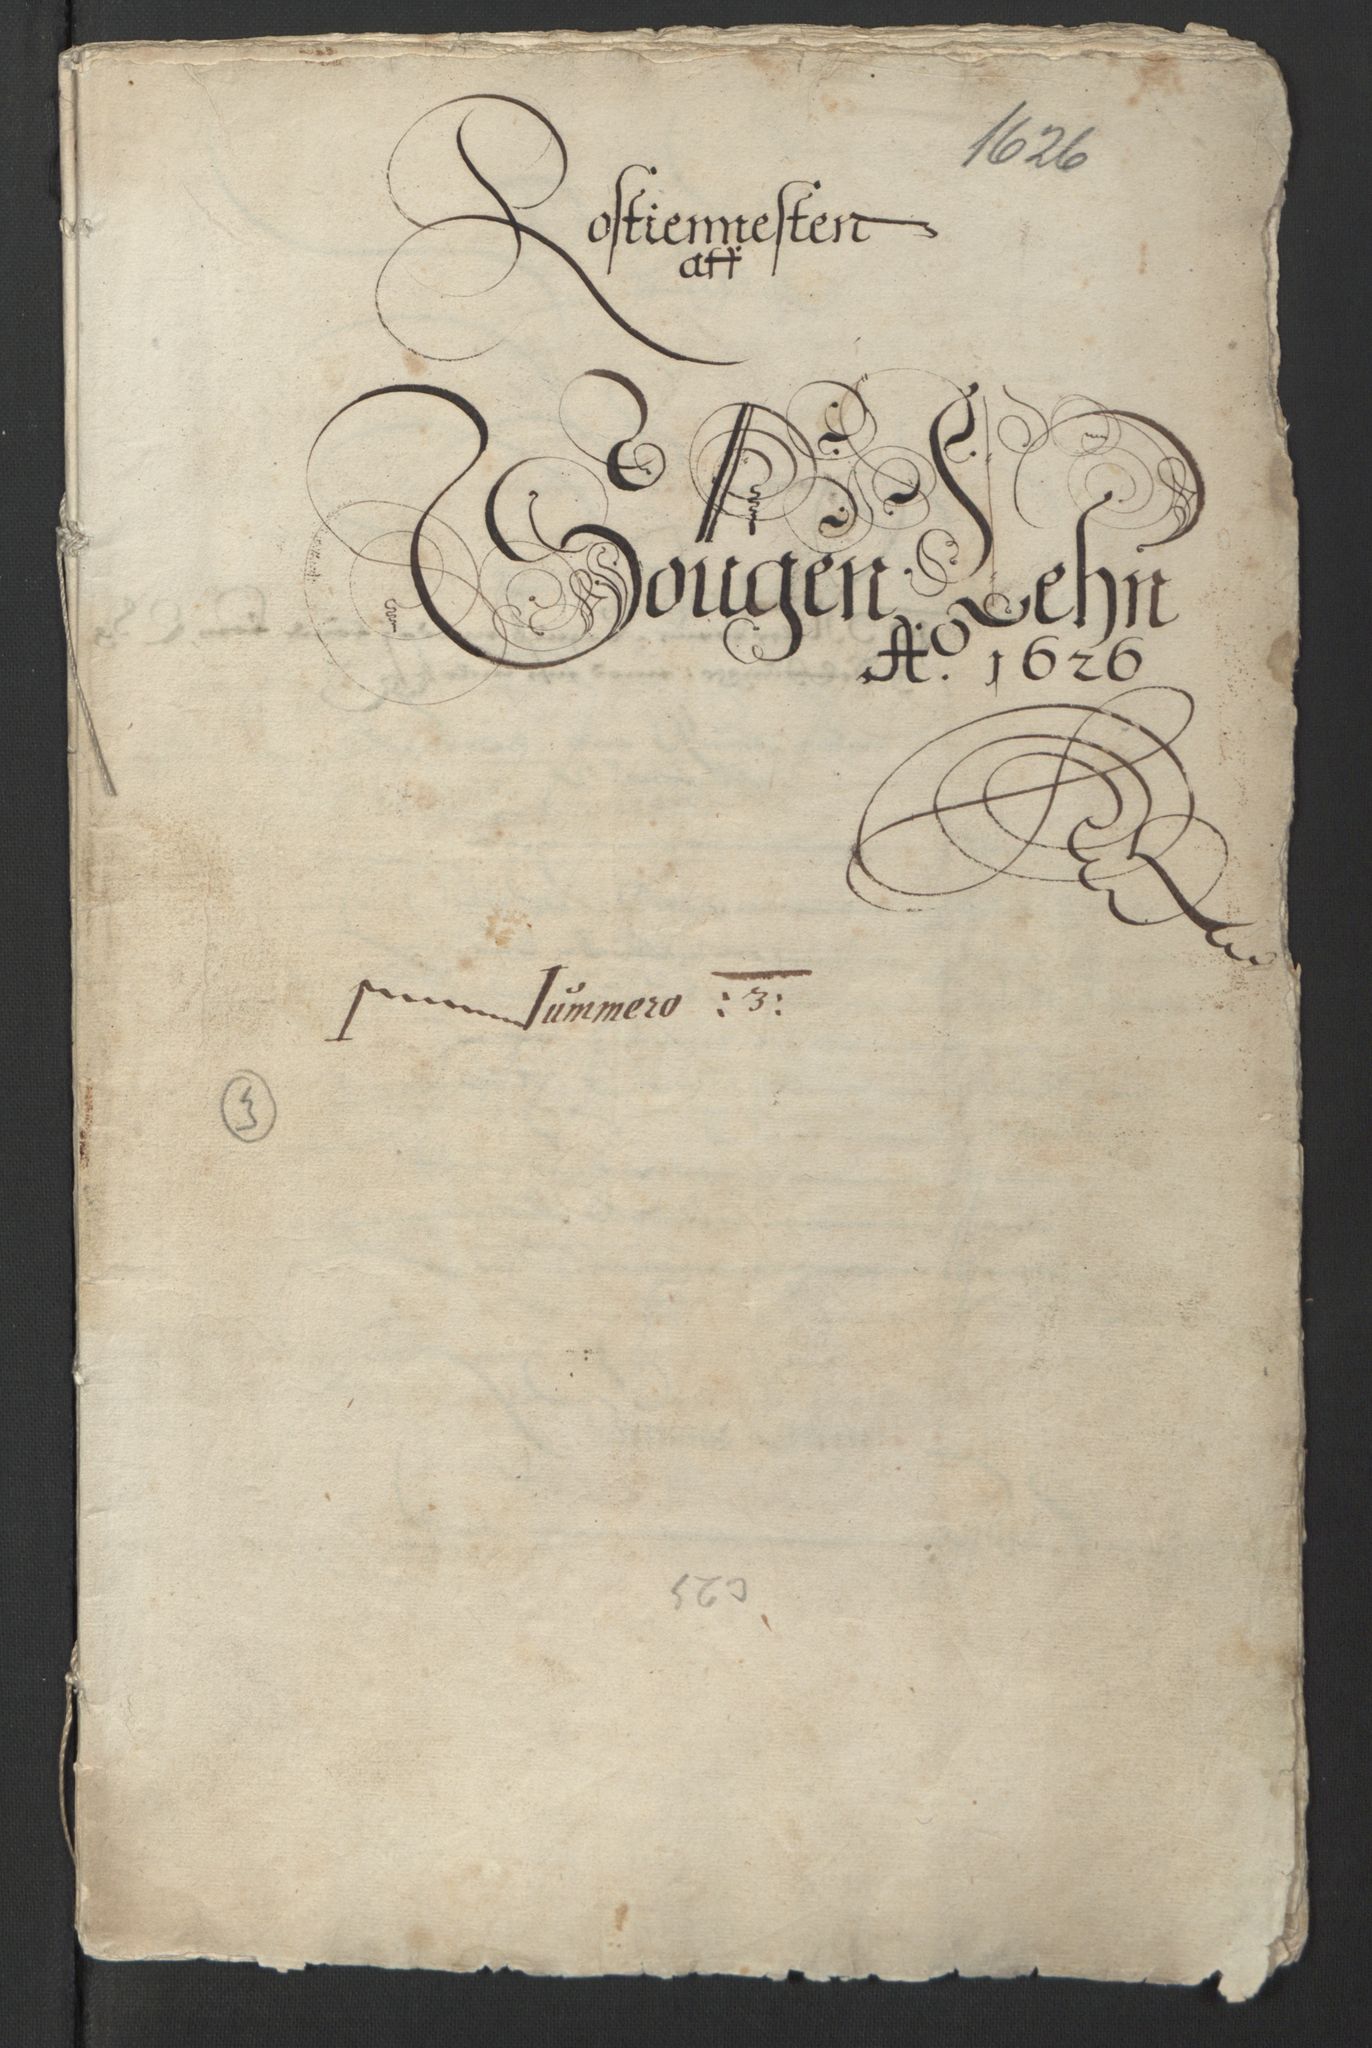 1626
Rostiennesten
aff
Bougen Lehn
Ao. 1626
Nummero :3:
3